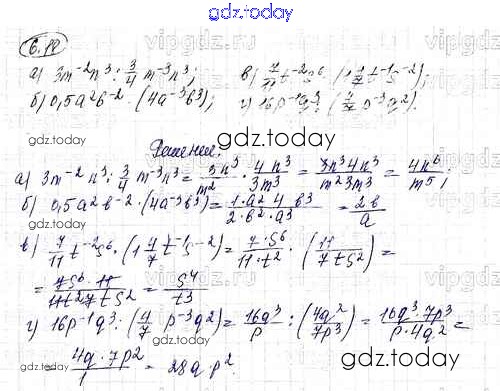 gdz.today
6.12
а) 3m⁻²n³ : 3/4 m⁻³n³; в) 7/11 t⁻²s⁶ · (1 4/7 t⁻¹s⁻²);
б) 0,5a²b⁻² · (4a⁻³b³); г) 16p⁻¹q³ : (4/7 p⁻³q²).
gdz.today
gdz.today
Решение:
gdz.today
а) 3m⁻²n³ : 3/4 m⁻³n³ = 3n³/m² · 4n³/3m³ = 3n³4n³/m²3m³ = 4n⁶/m⁵;
б) 0,5a²b⁻² · (4a⁻³b³) = 1·a²4b³/2·b²·a³ = 2b/a
в) 7/11 t⁻²s⁶ · (1 4/7 t⁻¹s⁻²) = 7·s⁶/11·t² · (11/7ts²) =
= 7s⁶·11/11t²7ts² = s⁴/t³
г) 16p⁻¹q³ : (4/7 p⁻³q²) = 16q³/p : (4q²/7p³) = 16q³·7p³/p·4q² =
= 4q·7p²/1 = 28q·p².
gdz.today
gdz.today